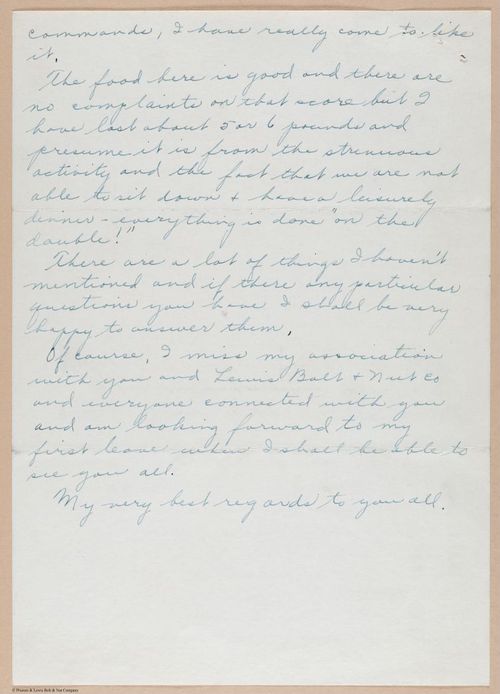 commands, I have really come to like
it.
The food here is good and there are
no complaints on that score but I
have lost about 5 or 6 pounds and
presume it is from the strenuous
activity and the fact that we are not
able to sit down + have a leisurely
dinner - everything is done "on the
double!"
There are a lot of things I haven't
mentioned and if there any particular
questions you have I shall be very
happy to answer them.
Of course, I miss my association
with you and Lewis Bolt + Nut Co
and everyone connected with you
and am looking forward to my
first leave when I shall be able to
see you all.
My very best regards to you all.
© Praxis & Lewis Bolt & Nut Company